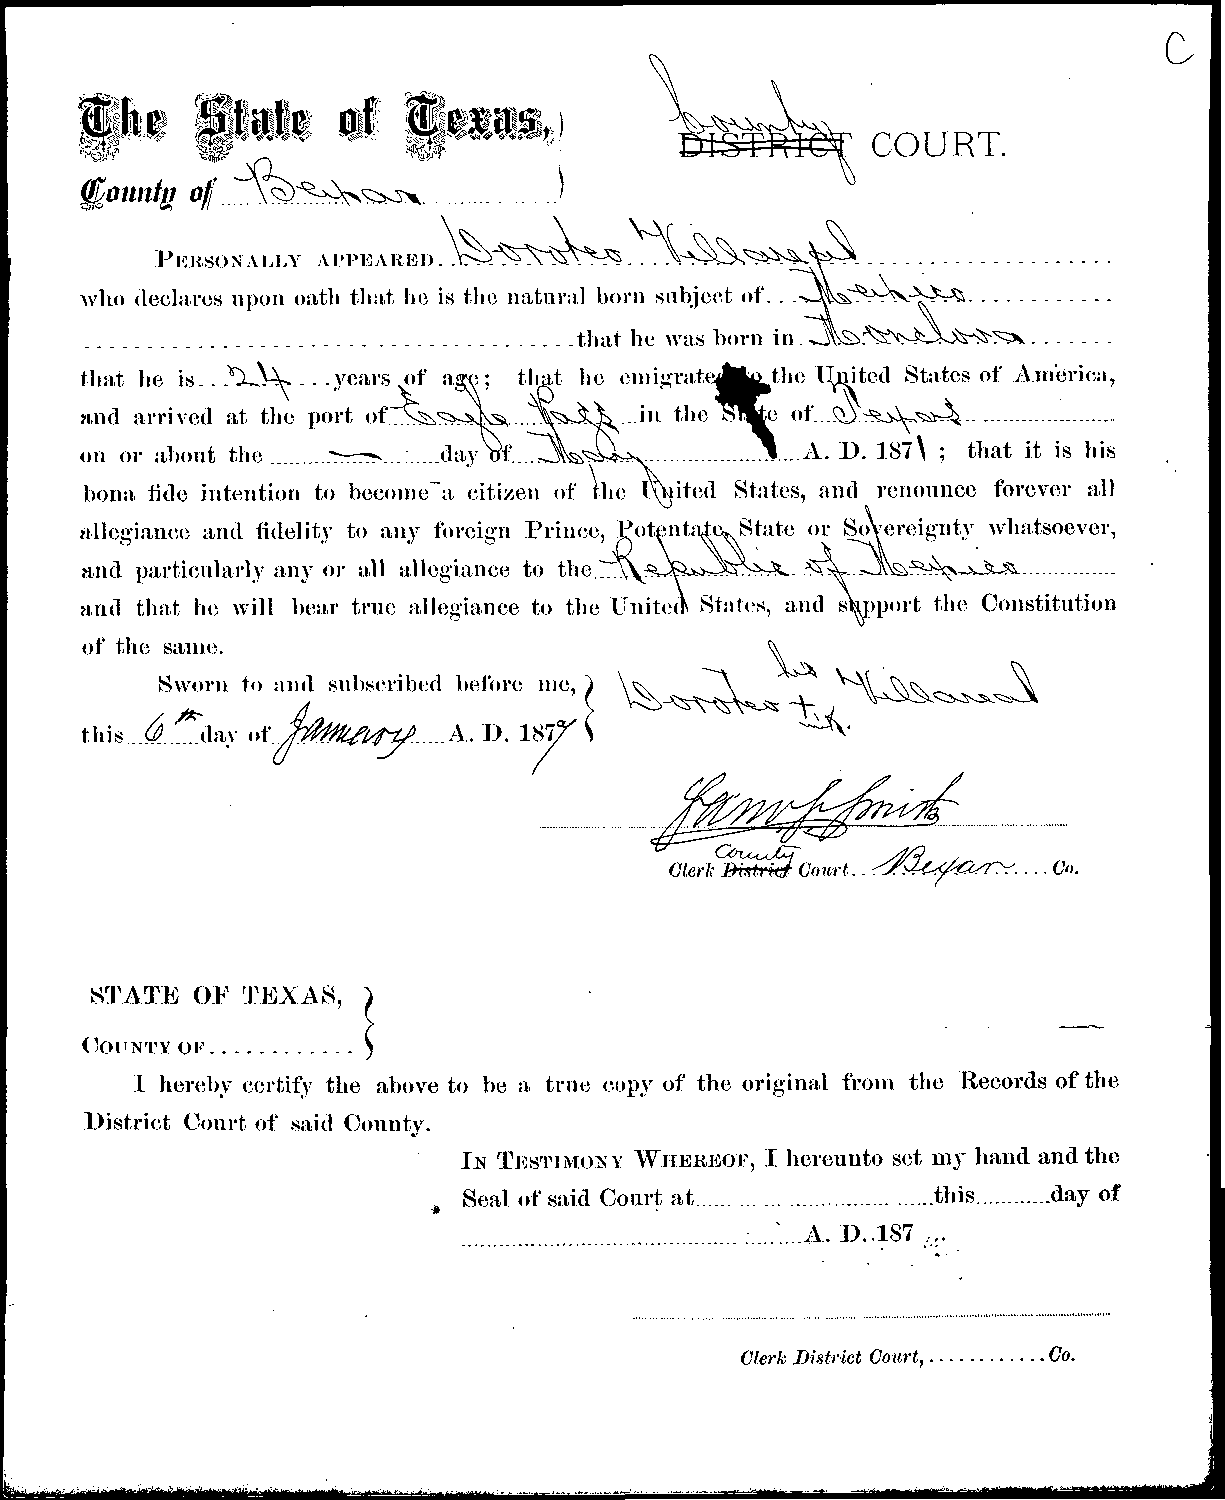 C
The State of Texas,
County
DISTRICT COURT.
County of Bexar
PERSONALLY APPEARED Doroteo Villareal
who declares upon oath that he is the natural born subject of Mexico
that he was born in Monclova
that he is 24 years of age; that he emigrated to the United States of America,
and arrived at the port of Eagle Pass in the State of Texas
on or about the — day of May A. D. 1871; that it is his
bona fide intention to become a citizen of the United States, and renounce forever all
allegiance and fidelity to any foreign Prince, Potentate, State or Sovereignty whatsoever,
and particularly any or all allegiance to the Republic of Mexico
and that he will bear true allegiance to the United States, and support the Constitution
of the same.
Sworn to and subscribed before me,
this 6th day of January A. D. 1877
his
Doroteo + Villareal
Sam S Smith
County
Clerk District Court Bexar Co.
STATE OF TEXAS,
COUNTY OF
I hereby certify the above to be a true copy of the original from the Records of the
District Court of said County.
IN TESTIMONY WHEREOF, I hereunto set my hand and the
Seal of said Court at this day of
A. D. 187
Clerk District Court, Co.